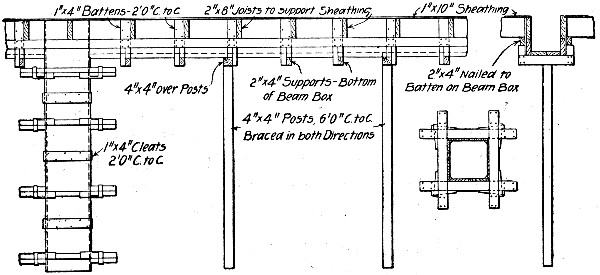 1"x4" Battens-2'0"C.toC.
2"x8"Joists to support Sheathing
1"x10" Sheathing
4"x4"over Posts
2"x4"Supports-Bottom
of Beam Box
2"x4"Nailed to
Batten on Beam Box
4"x4" Posts, 6'0"C.toC.
Braced in both Directions
1"x4"Cleats
2'0"C.toC.